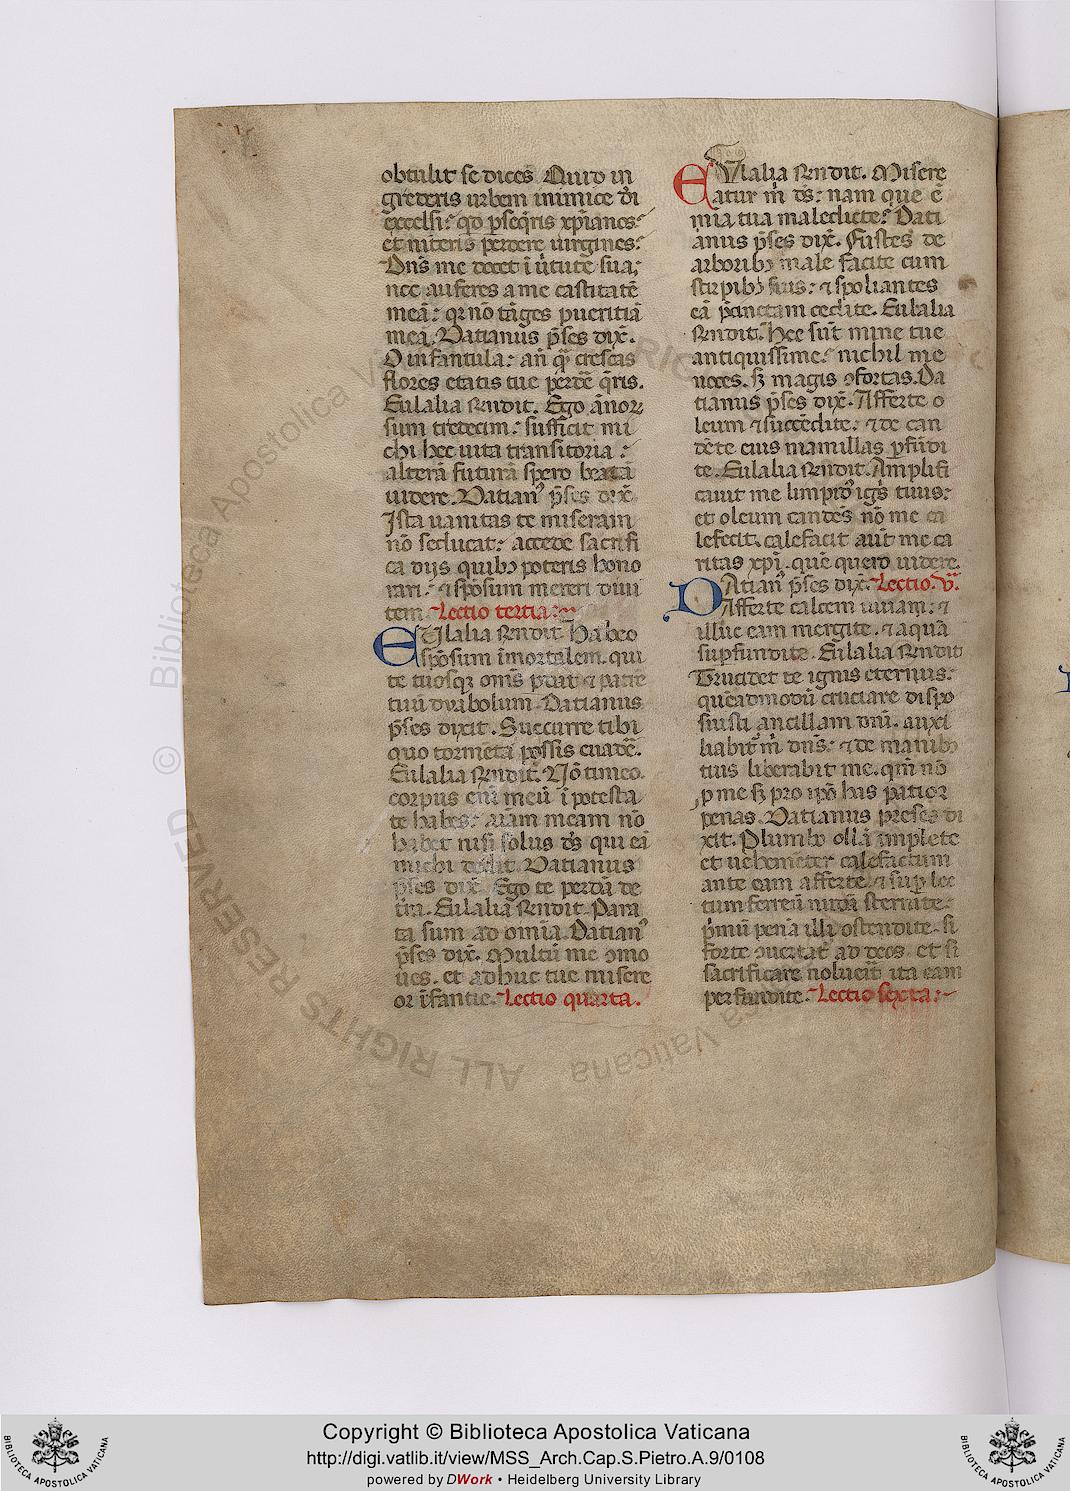 obtulit se dices. Quid in
grederis urbem inimice dī
excelsi: qd p̄seqris xp̄ianos:
et niteris perdere uirgines:
Dn̄s me docet ī uirtute sua,
nec auferes a me castitatē
meā: qr nō tāges pueritiā
meā. Datianus p̄ses dix̄.
O infantula: an̄ qꝫ crescas
flores etatis tue perdē qris.
Eulalia rn̄dit. Ego ānoꝝ
sum tredecim: sufficit mi
chi hec uita transitoria:
alterā futurā spero beatā
uidere. Datianꝰ p̄ses dix̄
Ista uanitas te miseram
nō seducat: accede sacrifi
ca diis quibꝫ poteris hono
rari: ⁊ sp̄osum mereri diui
tem. Lectio tertia:
EUlalia rn̄dit. Habeo
sp̄osum īmortalem. qui
te tuosqꝫ om̄s p̄dat ⁊ patrē
tuū dyabolum. Datianus
p̄ses dixit. Succurre tibi
quo tormēta possis euadē.
Eulalia rn̄dit. Nō timeo.
corpus eni meū ī potesta
te habes: aīam meam nō
habet nisi solus ds̄ qui eā
michi dedit. Datianus
p̄ses dix̄. Ego te perdā de
t̄ra. Eulalia rn̄dit. Para
ta sum ad omīa. Datianꝰ
p̄ses dix̄. Multū me ꝯmo
ues. et adhuc tue misere
or īfantie. Lectio quarta.
EUlalia rn̄dit. Misere
atur m̄ ds̄: nam que ē
mīa tua maledicte? Dati
anus p̄ses dix̄. Fustes de
arboribꝫ male facite cum
stirpibꝫ suis: ⁊ spoliantes
eā p̄cinctam cedite. Eulalia
rn̄dit. Hee sūt mine tue
antiquissime: nichil me
noces. sꝫ magis ꝯfortas. Da
tianus p̄ses dix̄. Afferte o
leum ⁊ succēdite: ⁊ de can
dēte eius mamillas p̄fūdi
te. Eulalia rn̄dit. Amplifi
cauit me limpidꝰ igīs tuus:
et oleum candēs nō me ca
lefecit. calefacit aut̄ me ca
ritas xp̄i. quē quero uidere.
DAtianꝰ p̄ses dix̄. Lectio. v̄.
Afferte calcem uiuam: ⁊
illuc eam mergite. ⁊ aquā
sup̄fundite. Eulalia rn̄dit
Trucidet te ignis eternus:
quēadmodū cruciare dispo
suisti ancillam dn̄i. auxi
liabit̄ m̄ dn̄s: ⁊ de manibꝫ
tuis liberabit me. qm̄ nō
ꝓ me sꝫ pro ip̄o his patior
penas. Datianus preses di
xit. Plumbo ollā implete
et uehemēter calefactum
ante eam afferte. ⁊ sup̄ lec
tum ferreū nudā sternite:
p̄mū penā illi ostendite. si
forte ꝯuertat̄ ad deos. et si
sacrificare noluerit ita eam
perfundite. Lectio sexta:
© Biblioteca Apostolica Vaticana
ALL RIGHTS RESERVED
Copyright © Biblioteca Apostolica Vaticana
http://digi.vatlib.it/view/MSS_Arch.Cap.S.Pietro.A.9/0108
powered by DWork • Heidelberg University Library
BIBLIOTECA APOSTOLICA VATICANA
BIBLIOTECA APOSTOLICA VATICANA